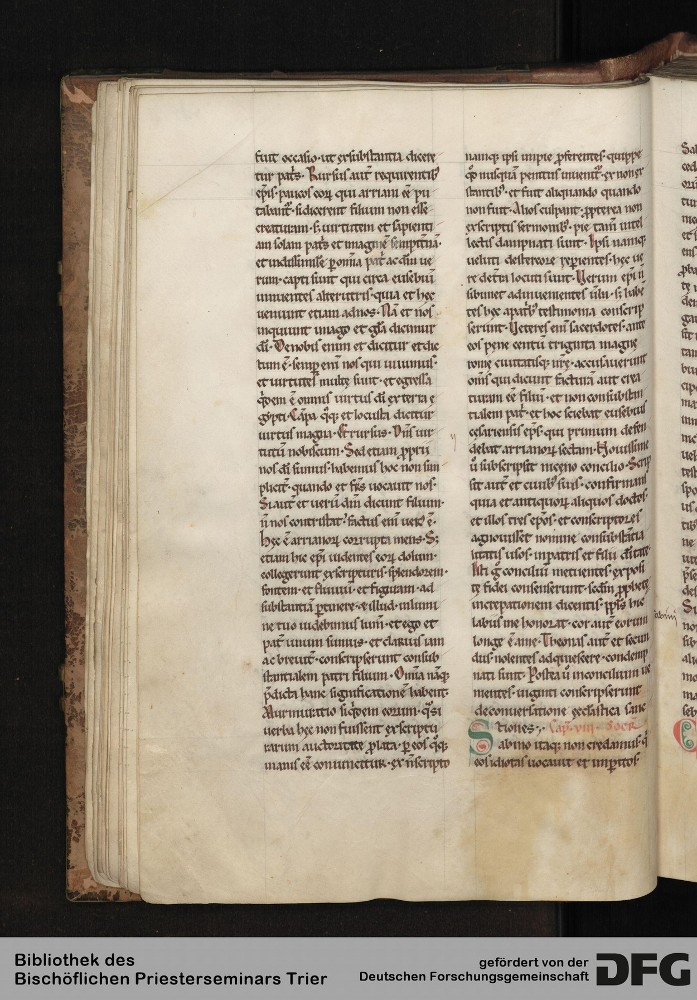 fuit occasio · ut ex substantia dicere
tur pat̄s · Rursus aut̄ requirentib;
ep̄is · paucos eoꝝ qui arriani eē pu
tabant̄ · si dicerent filium non esse
creaturam · s; uirtutem et sapienti
am solam pat̄s et imaginē sempit̄nā ·
et indissimilē ꝑ omnia pat̄ ac dm̄ ue
rum · capti sunt qui circa eusebiū
innuentes alterutris · quia et hęc
ueniunt etiam ad nos · Nā et nos
inquiunt imago et gl̄a dicimur
dī · De nobis enim et dicitur et dic
tum ē · semp eni nos qui uiuimus ·
et uirtutes multę sunt · et egressa
qꝺem ē omnis uirtus dī ex terra ę
gypti · Cāpa qꝫ et locusta dicitur
uirtus magna · Et rursus · Dn̄s uir
tutū nobiscum · Sed etiam ꝓprii
nos dī sumus · habemus hoc non sim
plicit̄ · quando et fr̄s uocauit nos ·
Si aut̄ et uerū dm̄ dicunt filium ·
ū nos contristat̄ · factus eni ueꝰ ē ·
Hęc ē arrianoꝝ corrupta mens · S;
etiam hic ep̄i uidentes eoꝝ dolum ·
collegerunt ex scripturis · splendorem ·
fontem · et fluuiū · et figuram · ad
substantiā ꝑtinere · & illud · in lumi
ne tuo uidebimus lum̄ · et ego et
pat̄ unum sumus · et clarius iam
ac breuit̄ · conscripserunt consub
stantialem patri filium · Omīa naꝫ
p̄dicta hanc significationē habent ·
Murmuratio siqꝺem eorum · qͣsi
uerba hęc non fuissent ex scriptu
rarum auctoritate ꝓlata · ꝑ eos qꝫ
inanis eē conuincitur · ex n̄ scripto
namqꝫ ipsi impie ꝓferentes · quippe
qꝺ nusquā penitus inuenit̄ · ex non ex
stantib; · et fuit aliquando quando
non fuit · Alios culpant · ꝓpterea non
ex scriptis sermonib; · pie tam̄ intel
lectis dampnati sunt · Ipsi namqꝫ
ueluti de stercore repientes · hęc ue
re de tr̄a locuti sunt · Uerum ep̄i ū
sibimet adinuenientes ūba · s; habē
tes hęc a patrib; testimonia conscrip
serunt · Ueteres eni sacerdotes · ante
eos pęne centū triginta magnę
romę ciuitatisqꝫ nr̄ę · accusauerunt
om̄s qui dicunt factura aut crea
turam eē filiū · et non consubstan
tialem pat̄ · et hoc sciebat eusebius
cęsariensis ep̄s · qui primum defen
debat arrianoꝝ sectam · Nouissime
ū subscripsit niceno concilio · Scrip
sit aut̄ et ciuib; suis · confirmans
quia et antiquoꝝ aliquos doctos ·
et illos tres ep̄os · et conscriptores
agnouisset nomine consubstātia
litatis usos · in patris et filii dīitate ·
Isti ḡ conciliū metuentes · exposi
tę fidei consenserunt · scdm̄ ꝓphetę
increpationem dicentis · Ppl̄s hic
labiis me honorat · cor aut̄ eorum
longe ē a me · Theonas aut̄ et secun
dus · nolentes adquiescere · condemp
nati sunt · Postea ū in concilium ue
nientes · uiginti conscripserunt
de conuersatione ęcclastica sanc
tiones · Cap̄ · viij · Socr̄
Sabino itaqꝫ non credamus · q̄
eos idiotas uocauit et imꝑitos ·
Bibliothek des
Bischöflichen Priesterseminars Trier
gefördert von der
Deutschen Forschungsgemeinschaft
DFG